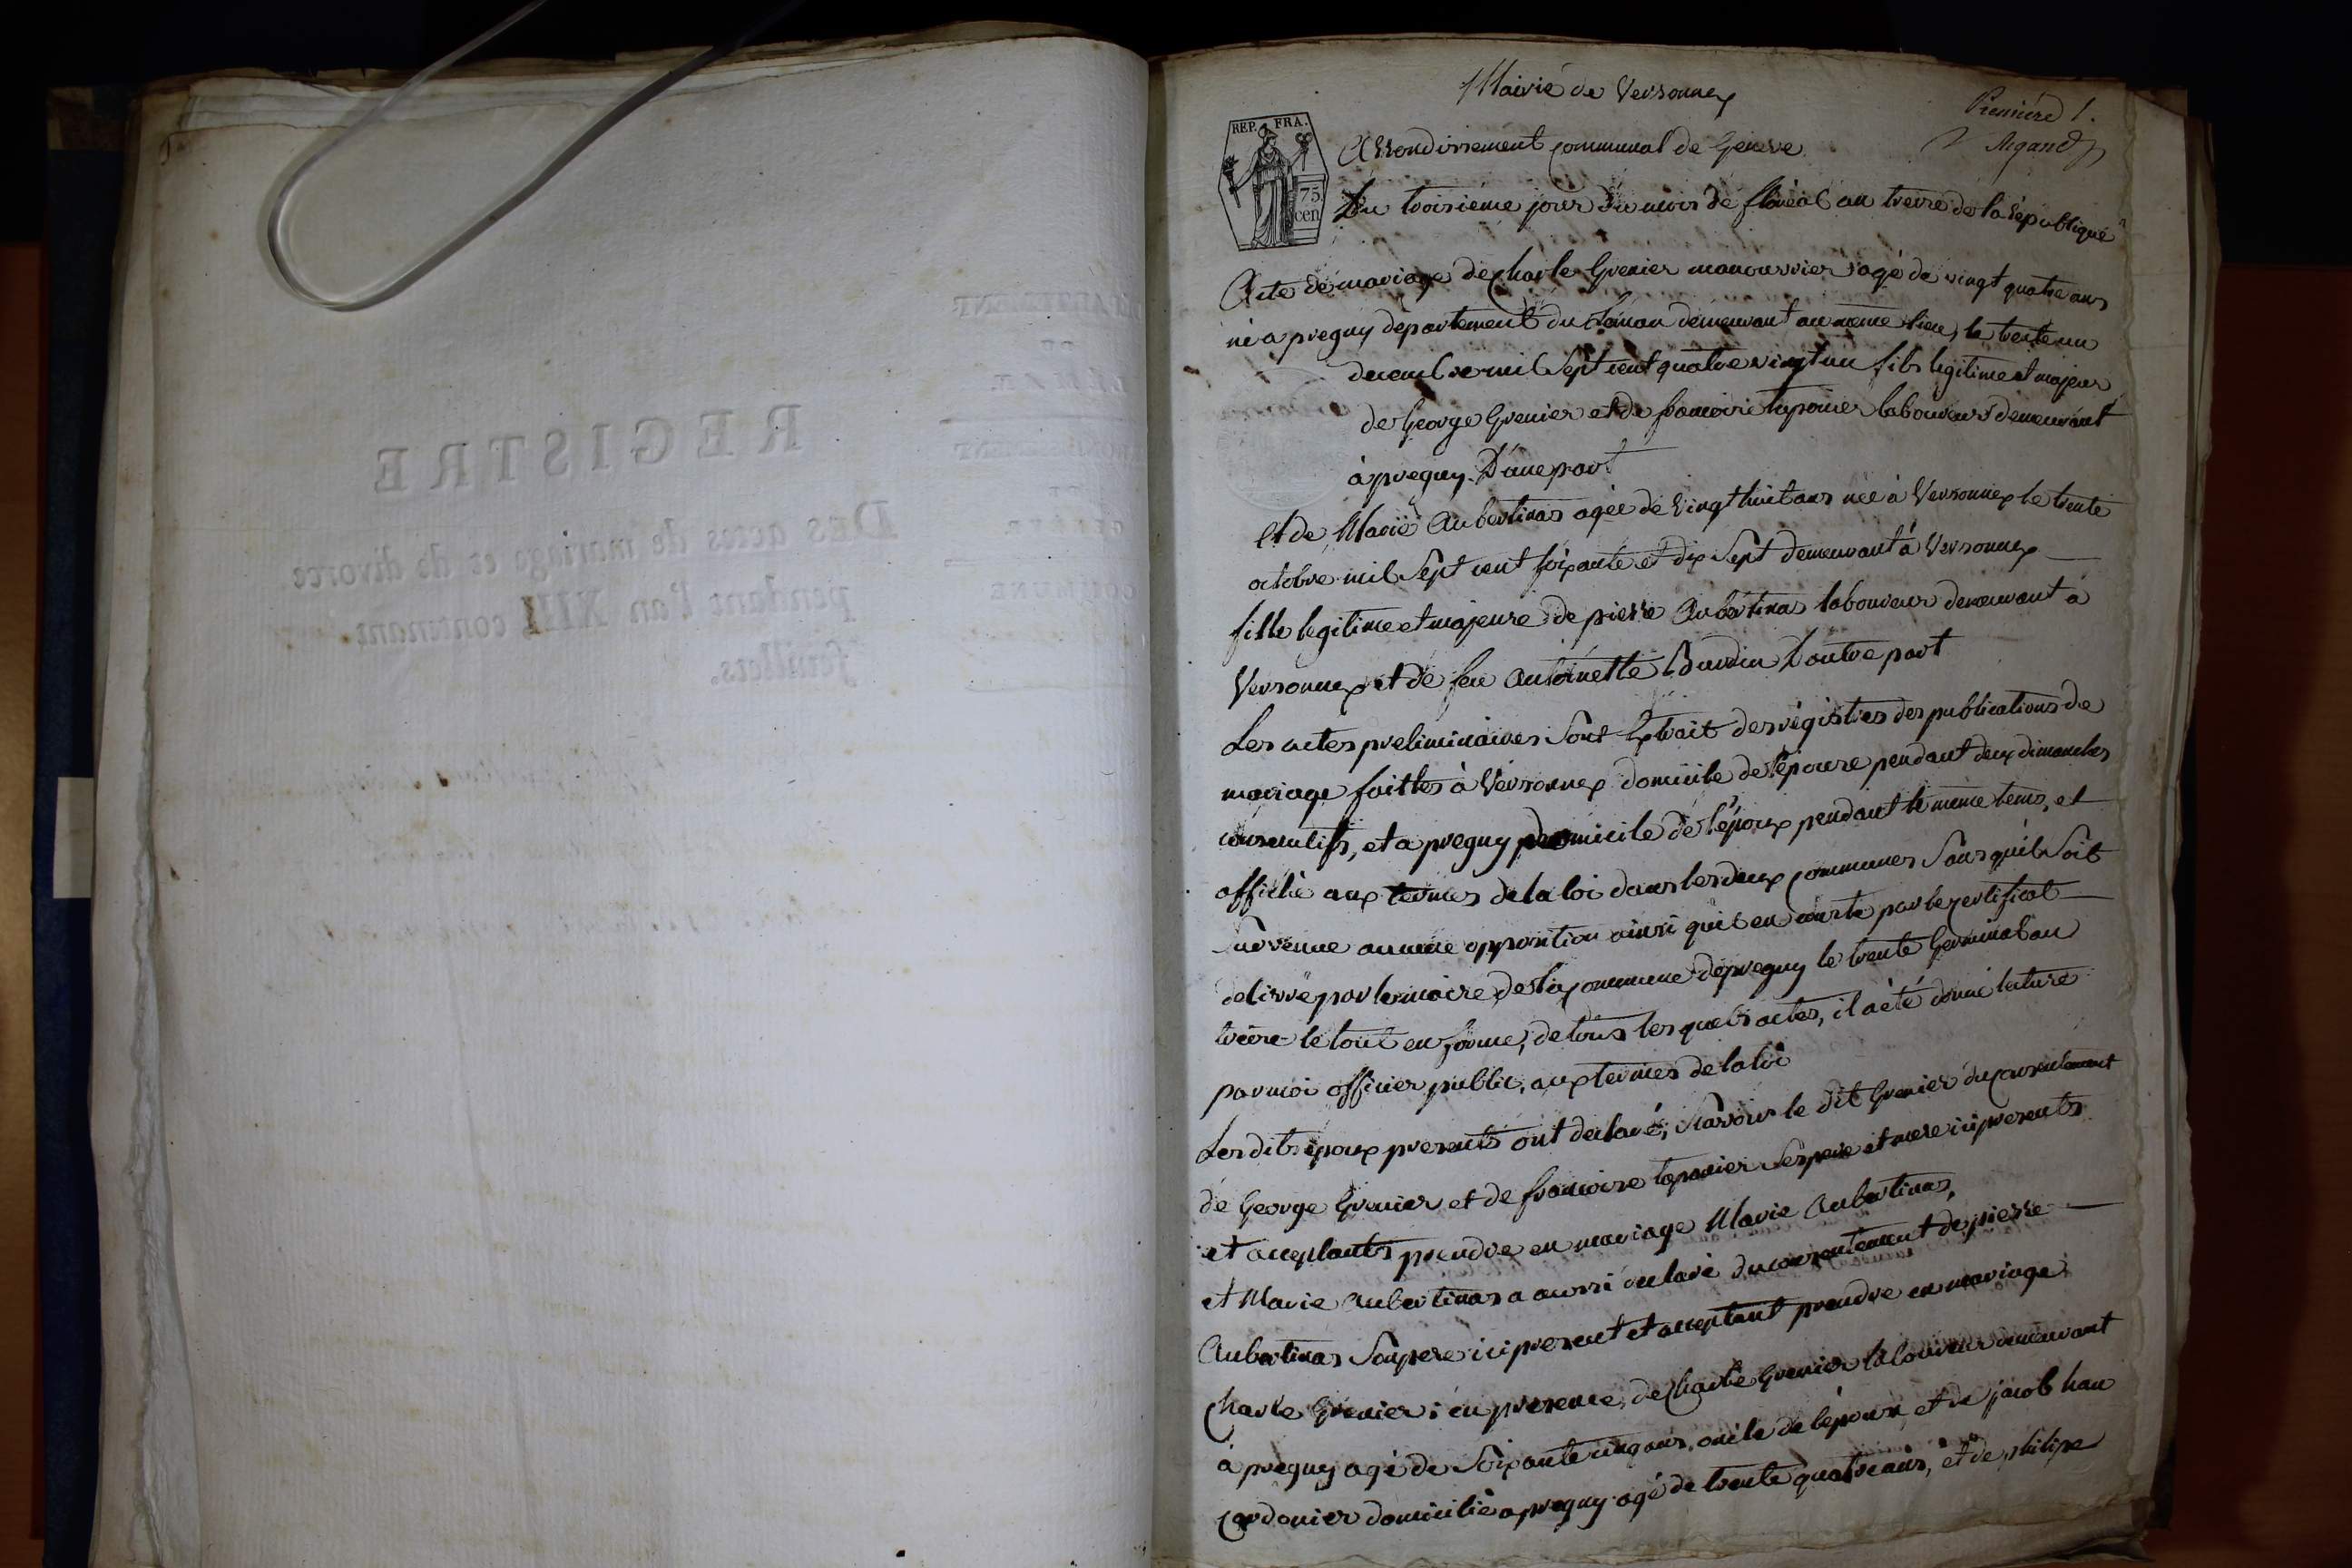 REGISTRE
Des actes de mariage et de divorce
pendant l'an XIII, contenant
feuillets.
Mairie de Versonnex
Premiere 1.
Argand
REP. FRA.
75
cen
Arrondissement communal de Geneve
Du troisieme jour du mois de floréal an treize de la république
Acte de mariage de charle Grenier manouvrier agé de vingt quatre ans
né a pregny departement du Léman demeurant au meme lieu, le trente un
decembre mil Sept cent quatre vingt un fils legitime et majeur
de George Grenier et de francoise taponier laboureurs demeurant
à pregny D'une part
et de Marie Aubertinas agée de vingt huit ans née à Versonnex le trente
octobre mil Sept cent soixante et dix Sept demeurant à Versonnex
fille legitime et majeure de pierre Aubertinas laboureur demeurant à
Versonnex et de feu Antoinette Burdin D'autre part
Les actes preliminaires Sont Extrait des régistres des publications de
mariage faittes à Versonnex domicile de l'épouse pendant deux dimanches
consecutifs, et a pregny domicile de l'époux pendant le même tems, et
affiché aux termes de la loi dans les deux communes Sans qu'il Soit
survenue aucune opposition ainsi qu'il en conste par le certificat
delivré par le maire de la commune de pregny le trente Germinal an
treize le tout en forme, de tous les quels actes, il a été donné lecture
par moi officier public, aux termes de la loi
Les dits époux presents ont declaré, Savoir le dit Grenier du consentement
de George Grenier et de francoise taponier Ses pere et mere ici presents
et acceptants prendre en mariage Marie Aubertinas,
et Marie Aubertinas a aussi declaré du consentement de pierre
Aubertinas Son pere ici present et acceptant prendre en mariage
Charle Grenier; en presence, de Charle Grenier laboureur demeurant
à pregny agé de Soixante cinq ans, oncle de l'époux, et de jacob hau
cordonier domicilié a pregny agé de trente quatre ans, et de philipe